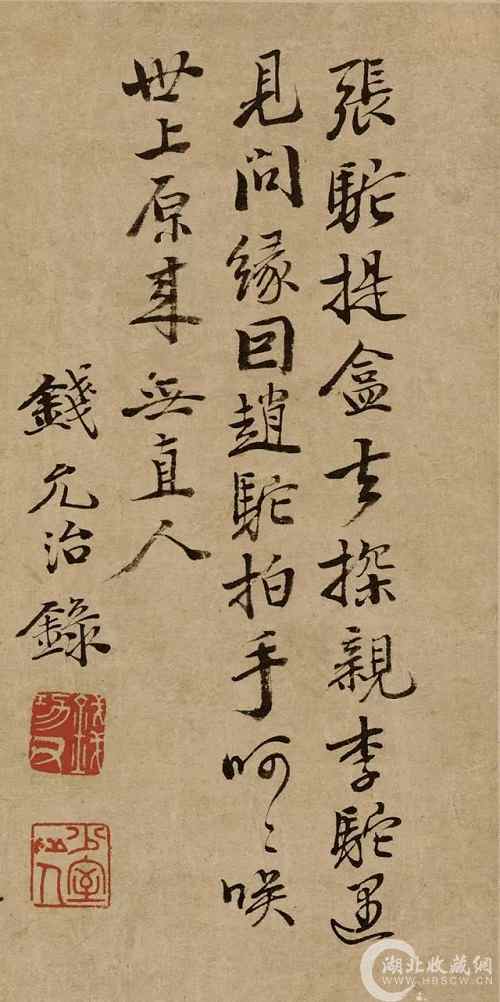 張駝提盒去探親李駝遇
見問緣因趙駝拍手呵〻咲
世上原来無直人
錢允治錄
少室山人
湖北收藏網
WWW.HBSCW.CN